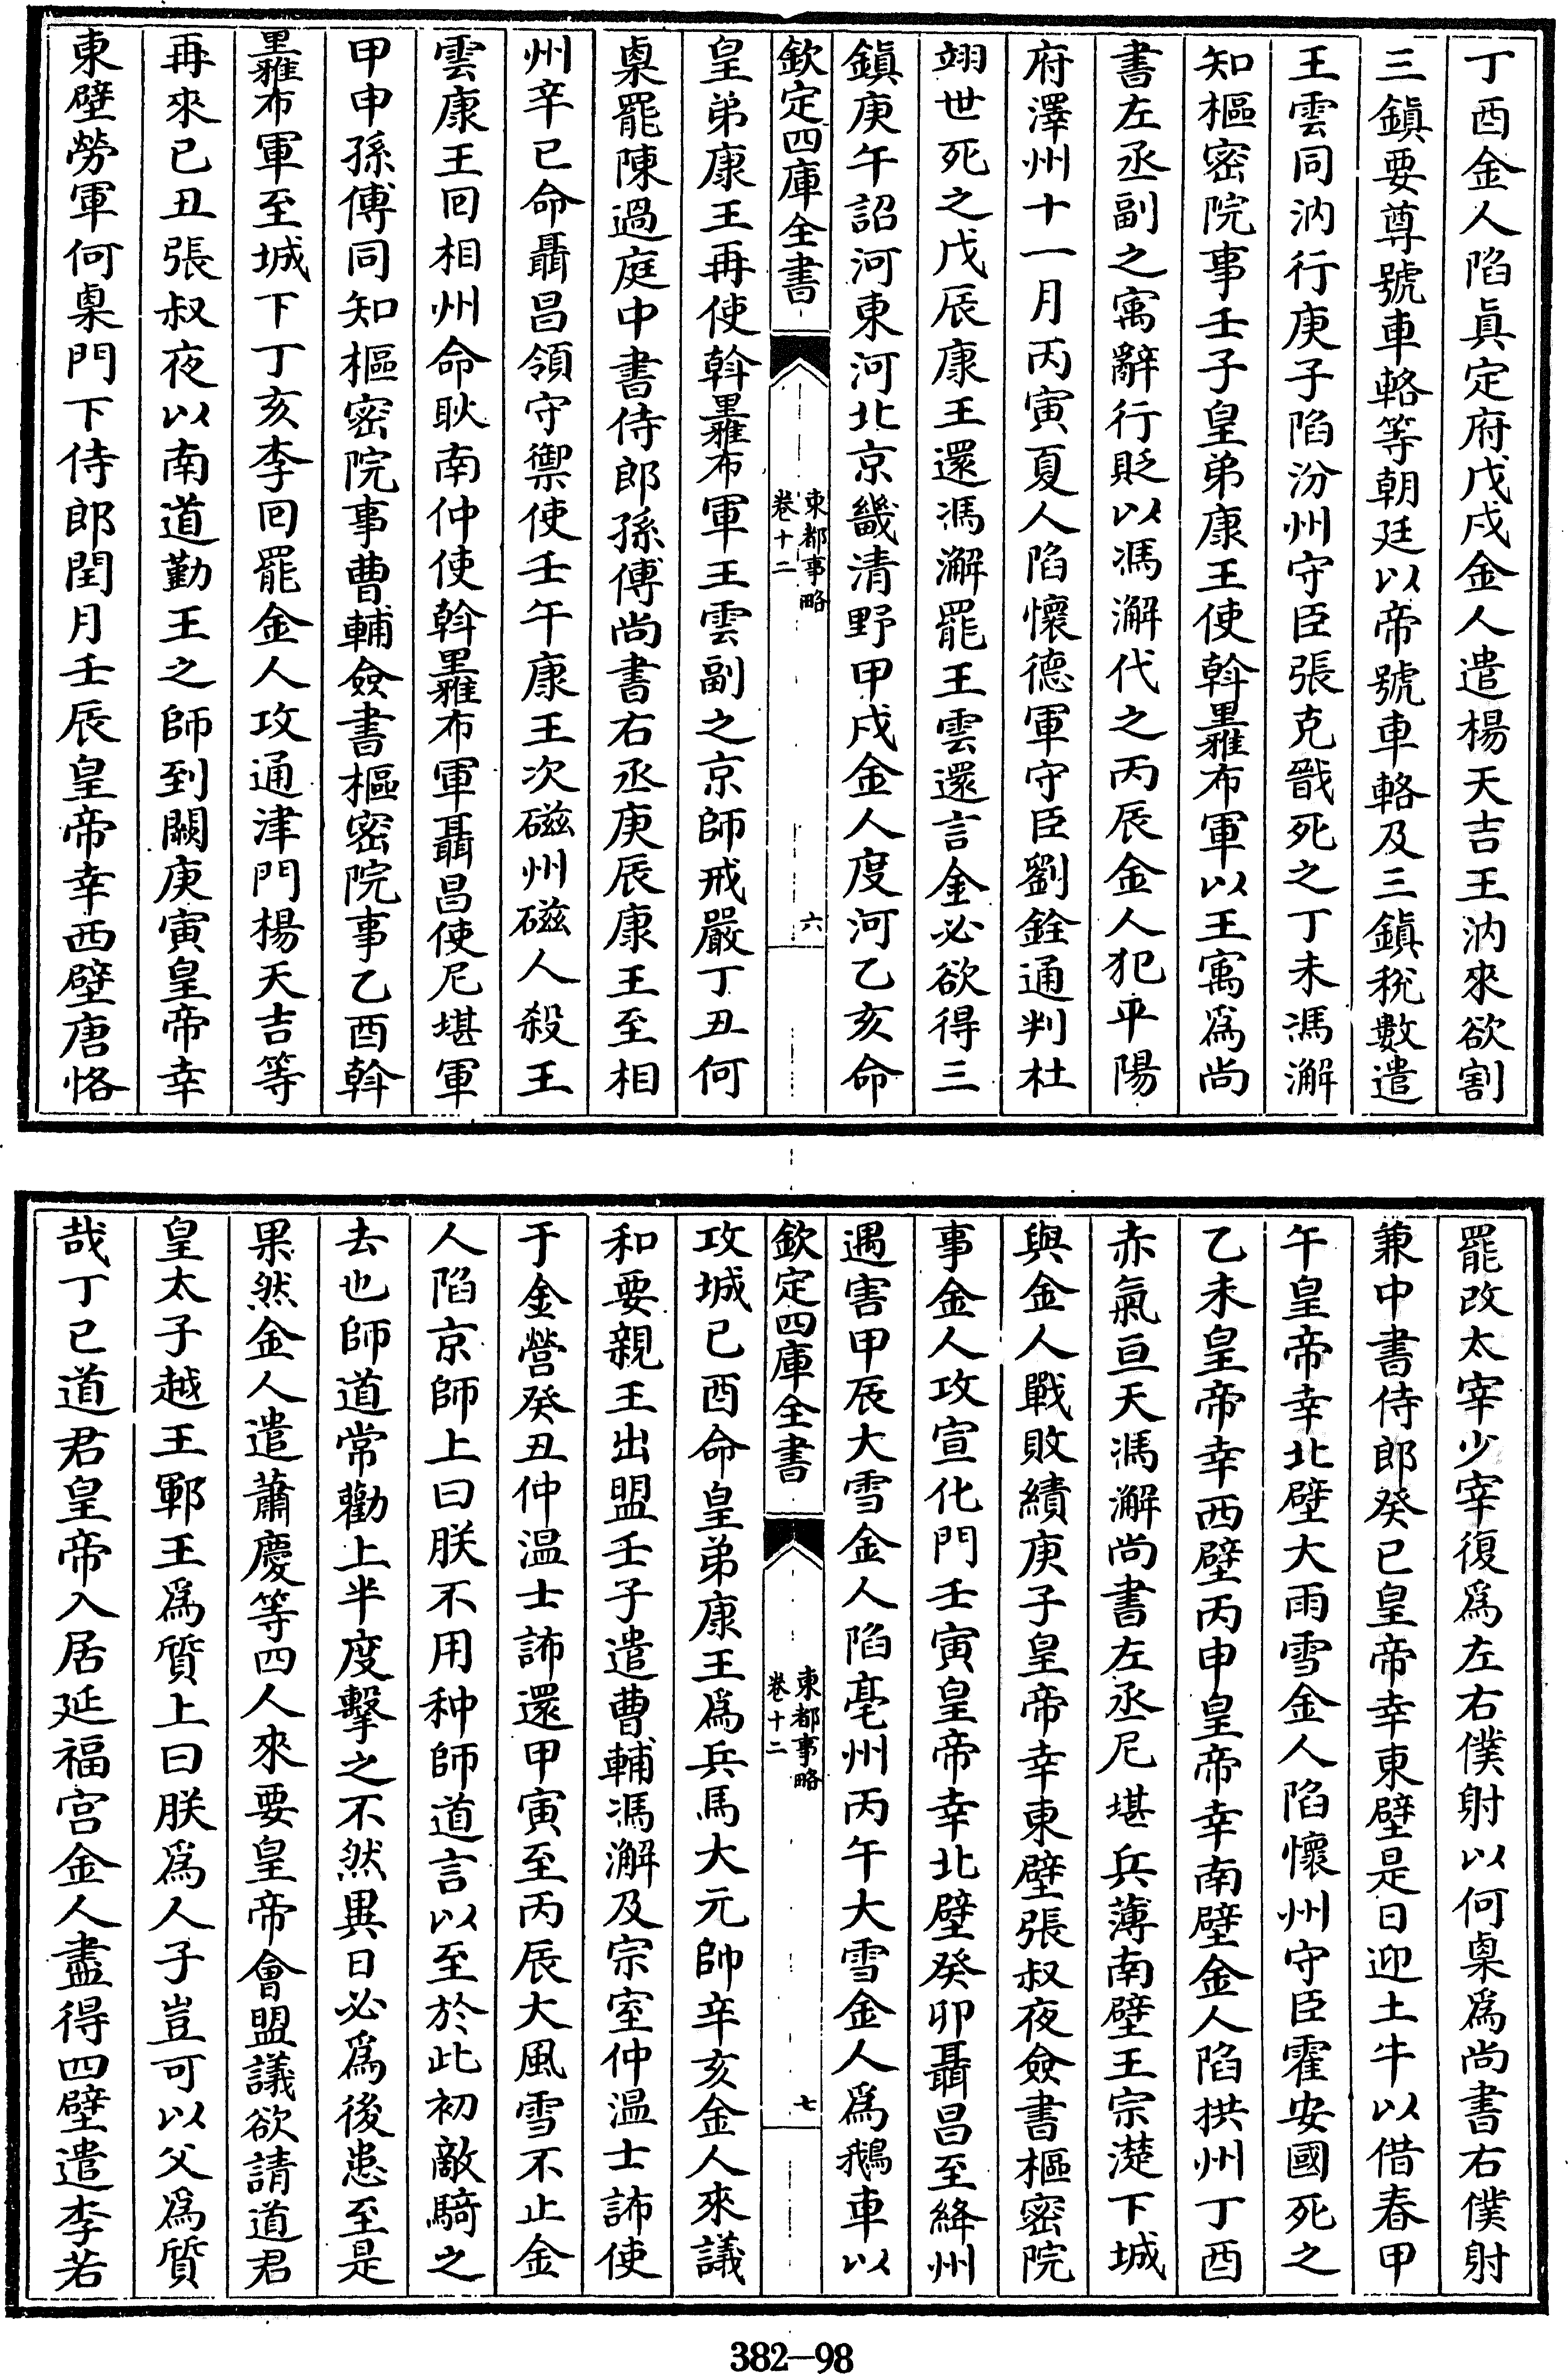 丁酉金人陷眞定府戊戌金人遣楊天吉王汭來欲割
三鎮要尊號車輅等朝廷以帝號車輅及三鎮稅數遣
王雲同汭行庚子陷汾州守臣張克戩死之丁未馮澥
知樞密院事壬子皇弟康王使斡里雅布軍以王㝢爲尚
書左丞副之㝢辭行貶以馮澥代之丙辰金人犯平陽
府澤州十一月丙寅夏人陷懷德軍守臣劉銓通判杜
翊世死之戊辰康王還馮澥罷王雲還言金必欲得三
鎮庚午詔河東河北京畿清野甲戌金人度河乙亥命
欽定四庫全書
東都事略
卷十二
六
皇弟康王再使斡里雅布軍王雲副之京師戒嚴丁丑何
㮚罷陳過庭中書侍郎孫傅尚書右丞庚辰康王至相
州辛巳命聶昌領守禦使壬午康王次磁州磁人殺王
雲康王回相州命耿南仲使斡里雅布軍聶昌使尼堪軍
甲申孫傅同知樞密院事曹輔僉書樞密院事乙酉斡
里雅布軍至城下丁亥李回罷金人攻通津門楊天吉等
再來己丑張叔夜以南道勤王之師到闕庚寅皇帝幸
東壁勞軍何㮚門下侍郎閏月壬辰皇帝幸西壁唐恪
罷改太宰少宰復爲左右僕射以何㮚爲尚書右僕射
兼中書侍郎癸巳皇帝幸東壁是日迎土牛以借春甲
午皇帝幸北壁大雨雪金人陷懷州守臣霍安國死之
乙未皇帝幸西壁丙申皇帝幸南壁金人陷拱州丁酉
赤氣亘天馮澥尚書左丞尼堪兵薄南壁王宗濋下城
與金人戰敗績庚子皇帝幸東壁張叔夜僉書樞密院
事金人攻宣化門壬寅皇帝幸北壁癸卯聶昌至絳州
遇害甲辰大雪金人陷亳州丙午大雪金人爲鵝車以
欽定四庫全書
東都事略
卷十二
七
攻城己酉命皇弟康王爲兵馬大元帥辛亥金人來議
和要親王出盟壬子遣曹輔馮澥及宗室仲溫士㒟使
于金營癸丑仲溫士㒟還甲寅至丙辰大風雪不止金
人陷京師上曰朕不用种師道言以至於此初敵騎之
去也師道常勸上半度擊之不然異日必爲後患至是
果然金人遣蕭慶等四人來要皇帝會盟議欲請道君
皇太子越王鄆王爲質上曰朕爲人子豈可以父爲質
哉丁巳道君皇帝入居延福宮金人盡得四壁遣李若
382—98